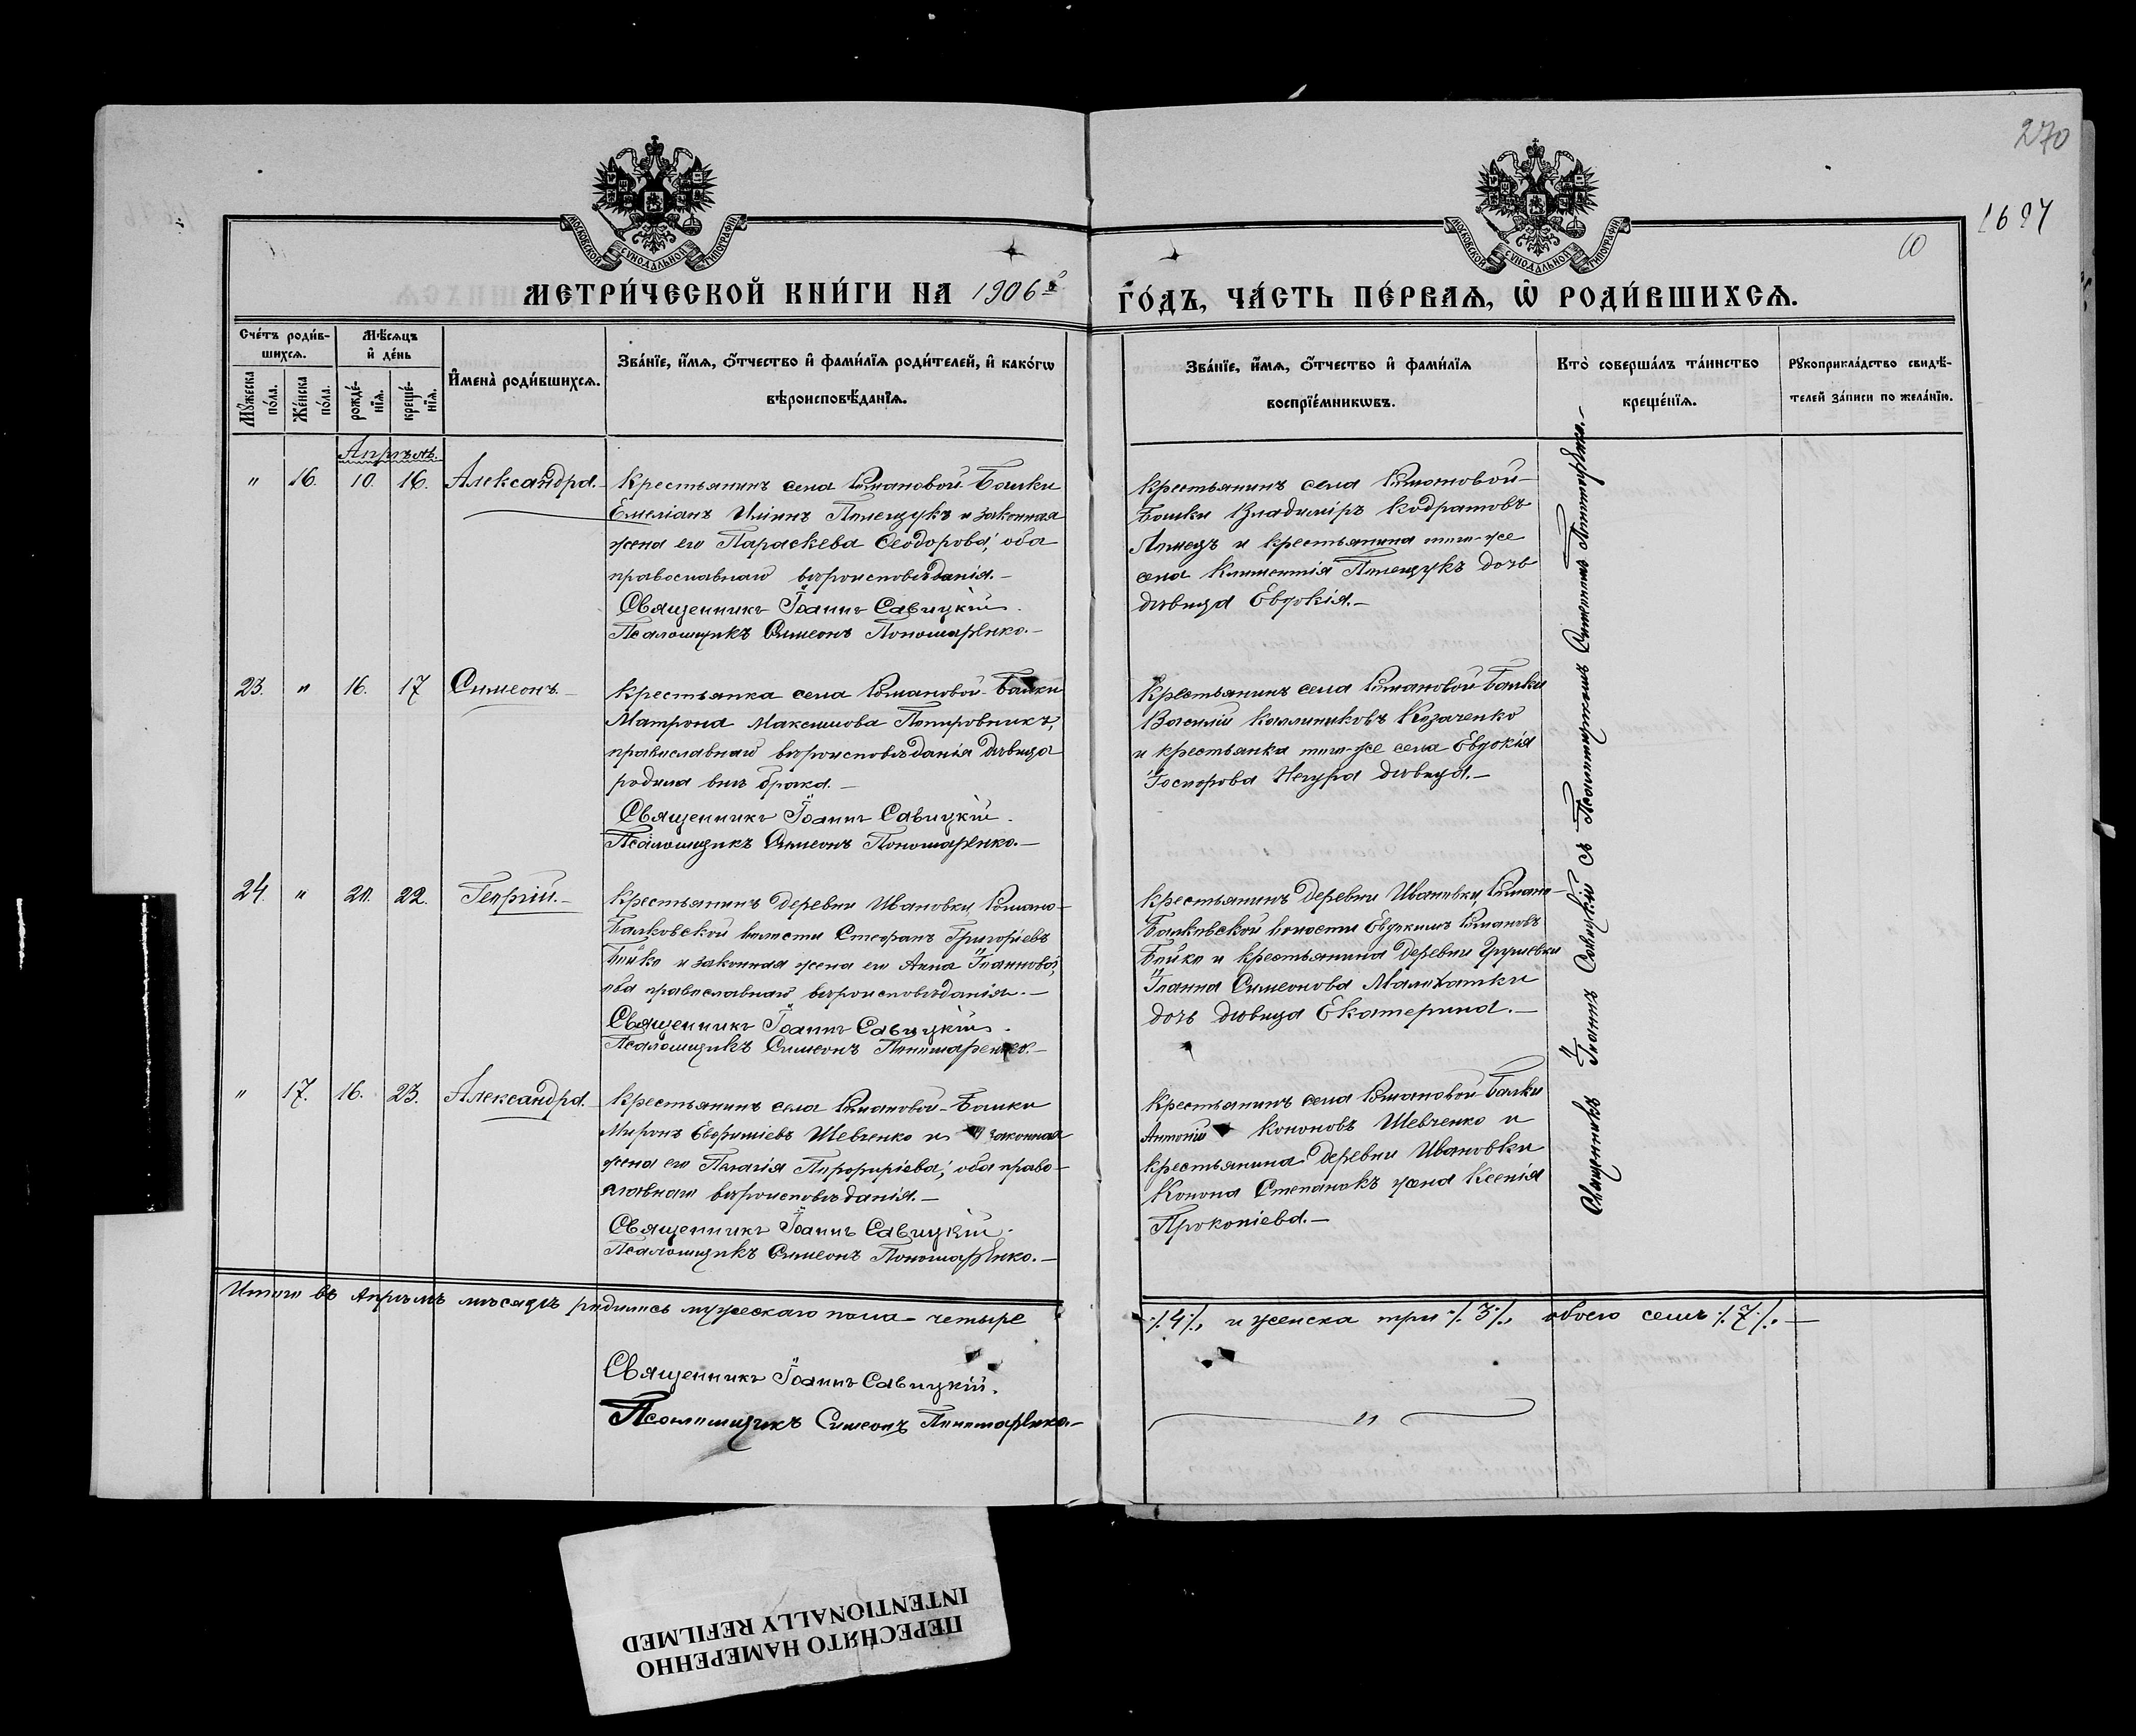 270
1697
МОСКОВСКОЙ СѴНОДАЛЬНОЙ ТИПОГРАФІИ
МОСКОВСКОЙ СѴНОДАЛЬНОЙ ТИПОГРАФІИ
МЕТРИ́ЧЕСКОЙ КНИ́ГИ НА 1906й
ГО́ДЪ, ЧА́СТЬ ПЕ́РВАѦ, Ѡ҆ РОДИ́ВШИХСѦ.
Сче́тъ роди́в-
шихсѧ.
Мꙋ́жеска по́ла.
Же́нска по́ла.
Мѣ́сѧцъ
и҆ де́нь
рожде́нїѧ.
креще́нїѧ.
И҆мена̀ роди́вшихсѧ.
Зва́нїе, и҆́мѧ, ѻ҆́тчество и҆ фами́лїѧ роди́телей, и҆ како́гѡ
вѣроисповѣ́данїѧ.
Зва́нїе, и҆́мѧ, ѻ҆́тчество и҆ фами́лїѧ
воспрїе́мникѡвъ.
Кто̀ соверша́лъ та́инство
креще́нїѧ.
Рꙋкоприкла́дство свидѣ́-
телей за́писи по жела́нїю.
Апрѣль.
" 16. 10. 16. Александра.
Крестьянинъ села Романовой-Балки
Емеліанъ Иліинъ Пилещукъ и законная
жена его Параскева Ѳеодорова; оба
православнаго вѣроисповѣданія.-
Священникъ Іоаннъ Савицкій.
Псаломщикъ Симеонъ Пономаренко.-
Крестьянинъ села Романовой-
Балки Владиміръ Кодратовъ
и крестьянина того-же
села Климентія Пилещукъ дочь
дѣвица Евдокія.-
23. " 16. 17 Симеонъ.-
Крестьянка села Романовой-Балки
Матрона Максимова
православнаго вѣроисповѣданія дѣвица
родила внѣ брака.-
Священникъ Іоаннъ Савицкій.
Псаломщикъ Симеонъ Пономаренко.-
Крестьянинъ села Романовой-Балки
Василій Каллиниковъ Козаченко
и крестьянка того-же села Евдокія
Негура дѣвица.-
24. " 22. Георгій.-
Крестьянинъ деревни Ивановки, Романо-
Балковской волости Стефанъ Григоріевъ
Бойко и законная жена его Анна Іоаннова;
оба православнаго вѣроисповѣданія.-
Священникъ Іоаннъ Савицкій.
Псаломщикъ Симеонъ Пономаренко.-
Крестьянинъ деревни Ивановки, Романо-
Балковской волости Евдокимъ Романовъ
Бойко и крестьянина деревни Грушевки
Іоанна Симеонова
дочь дѣвица Екатерина.-
" 17. 16. 23. Александра.
Крестьянинъ села Романовой-Балки
Миронъ Евфиміевъ Шевченко и законная
жена его Пелагія Порфиріева; оба право-
славнаго вѣроисповѣданія.-
Священникъ Іоаннъ Савицкій.
Псаломщикъ Симеонъ Пономаренко.-
Крестьянинъ села Романовой-Балки
Антоній Кононовъ Шевченко и
крестьянина деревни Ивановки
Конона Степанокъ жена Ксенія
Прокопіева.-
Священникъ Іоаннъ Савицкій съ Псаломщикомъ Симеономъ Пономаренко.-
Итого въ Апрѣлѣ мѣсяцѣ родилось мужескаго пола - четыре
/.4/., и женска три /.3/., обоего семь /.7/.-
Священникъ Іоаннъ Савицкій.
Псаломщикъ Симеонъ Пономаренко.-
ПЕРЕСНЯТО НАМЕРЕННО
INTENTIONALLY REFILMED